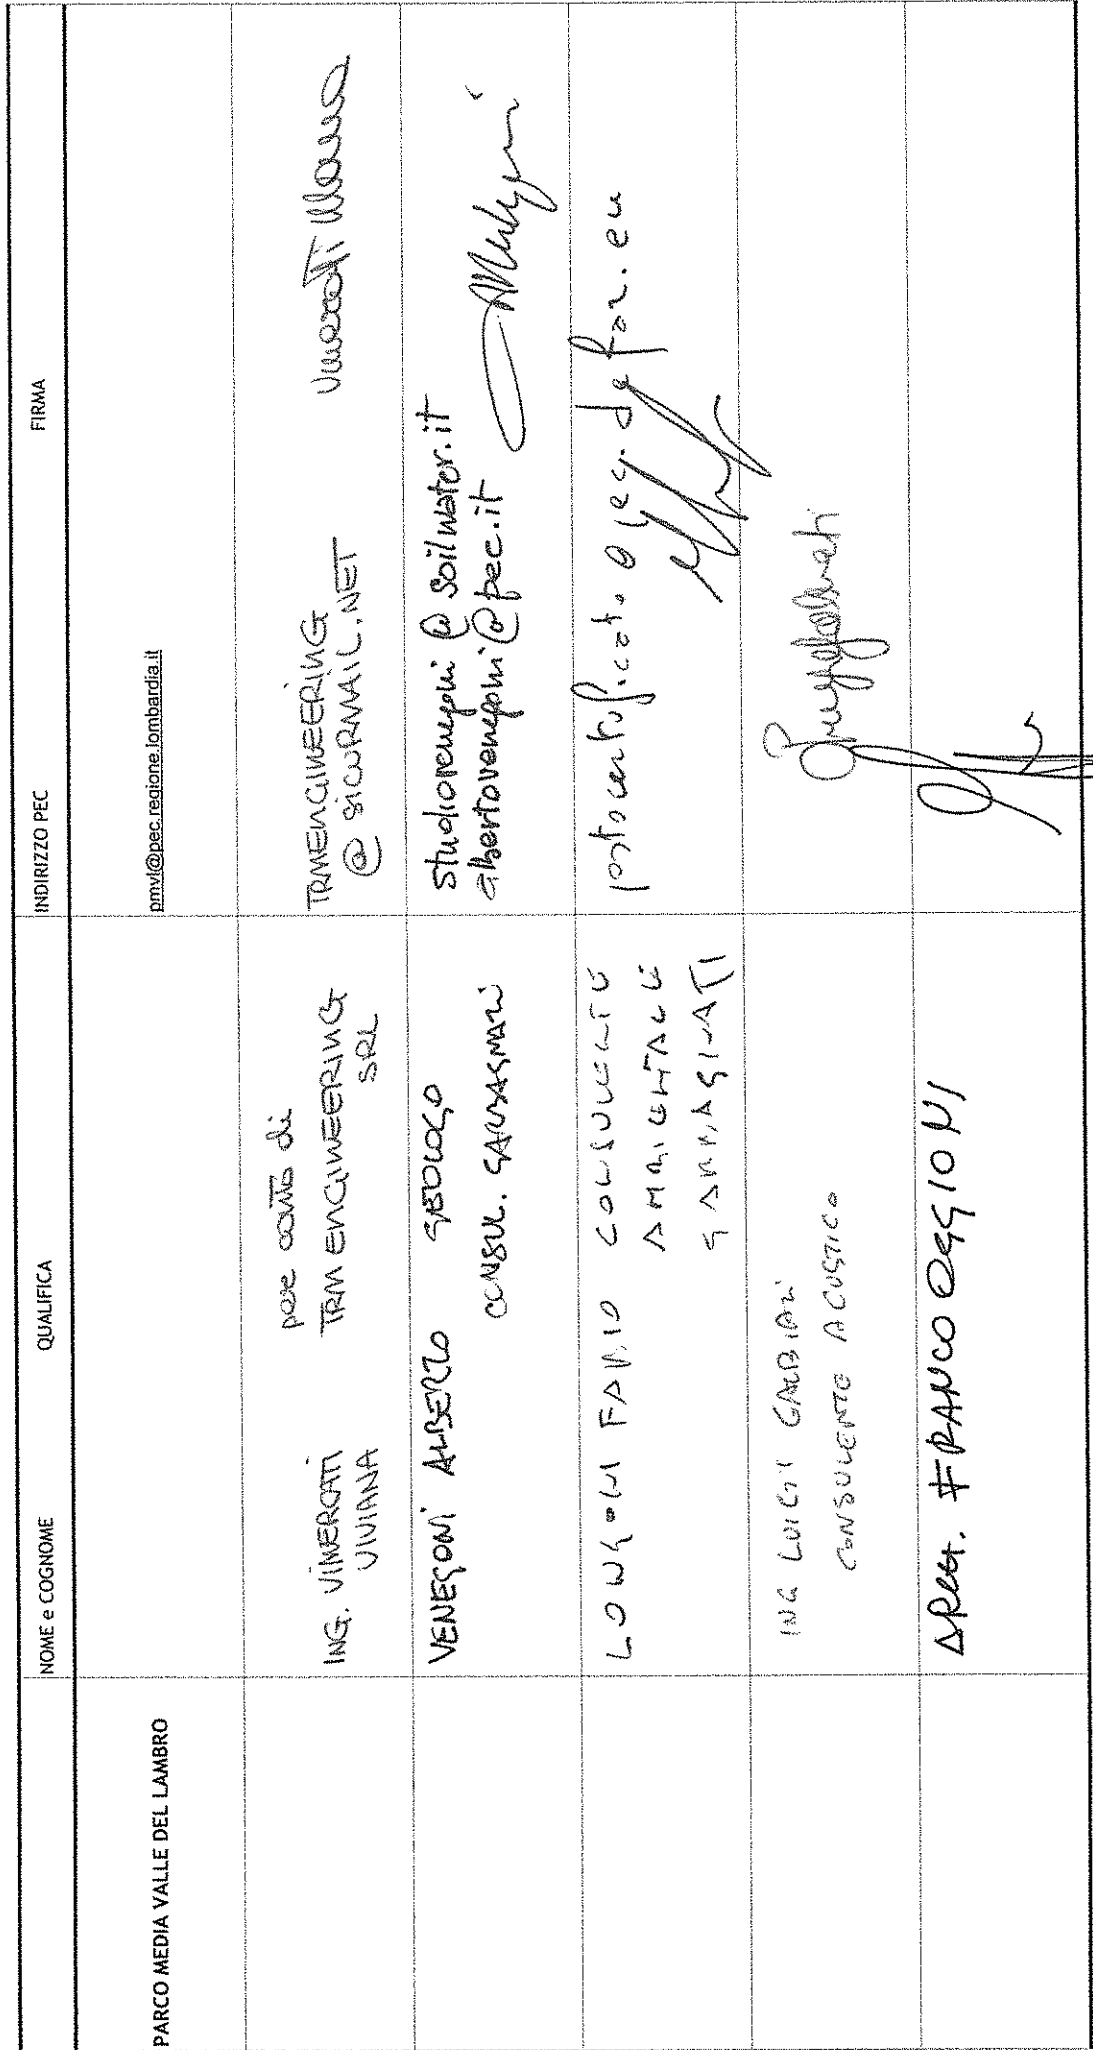 NOME e COGNOME QUALIFICA INDIRIZZO PEC FIRMA
PARCO MEDIA VALLE DEL LAMBRO
pmvl@pec.regione.lombardia.it
ING. VIMERCATI
VIVIANA
per conto di
TRM ENGINEERING
SRL
TRMENGINEERING
@ SICURMAIL.NET
Vimercati Viviana
VENEGONI ALBERTO GEOLOGO
CONSUL.
studiovenegoni @ soilwater.it
albertovenegoni@pec.it
LONGONI FABIO CONSULENTE
AMBIENTALE
postacertificata @ pec.
ING LUIGI
CONSULENTE ACUSTICO
ARCH. FRANCO OGGIONI